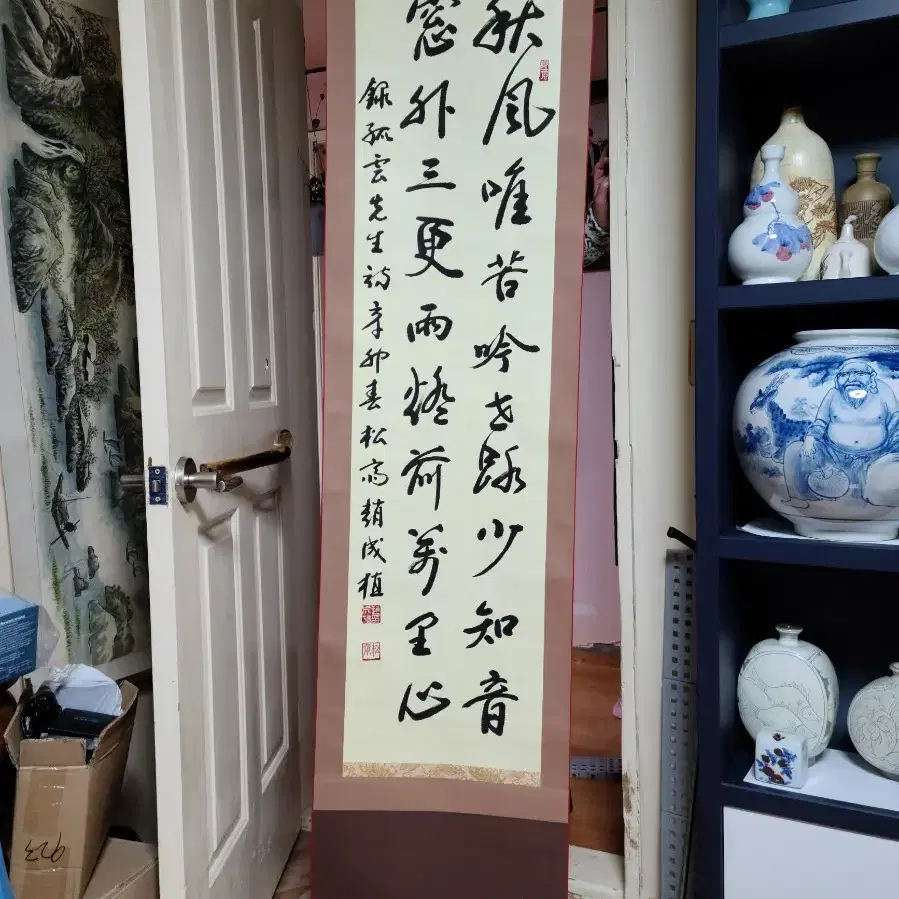 秋風唯苦吟世路少知音
窓外三更雨燈前萬里心
錄孤雲先生詩辛卯春松高趙成植